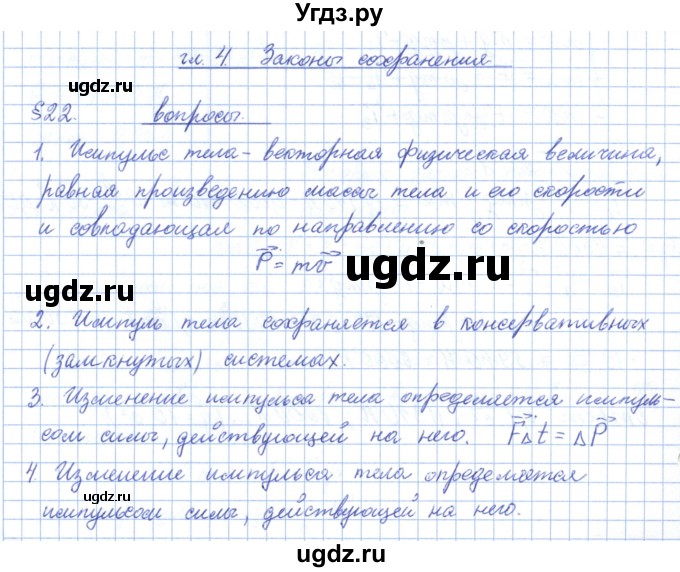 Угдз.ру
гл. 4. Законы сохранения
§22. вопросы.
ugdz.ru
1. Импульс тела - векторная физическая величина,
равная произведению массы тела и его скорости
ugdz.ru
и совпадающая по направлению со скоростью
P⃗ = mv⃗
ugdz.ru
ugdz.ru
2. Импуль тела сохраняется в консервативных
(замкнутых) системах.
3. Изменение импульса тела определяется импуль-
сом силы, действующей на него. F⃗Δt = ΔP⃗
4. Изменение импульса тела определяется
ugdz.ru
импульсом силы, действующей на него.
ugdz.ru